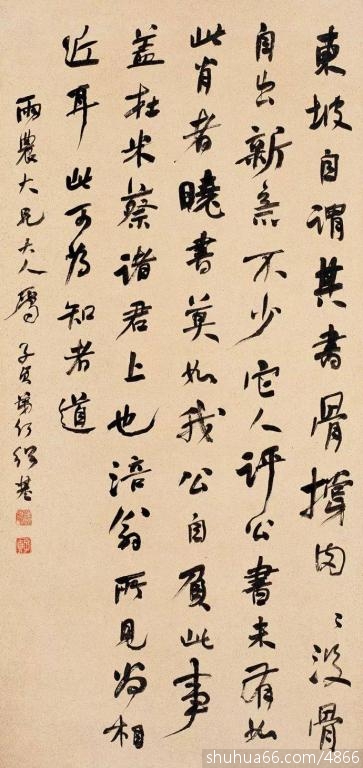 東坡自謂其書骨撐肉ミ沒骨
自出新意不少它人評公書未有如
此肖者曉書莫如我公自負此事
蓋在米蔡諸君上也涪翁所見為相
近耳此可為知者道
雨農大兄大人屬 子貞弟何紹基
shuhua66.com/4866